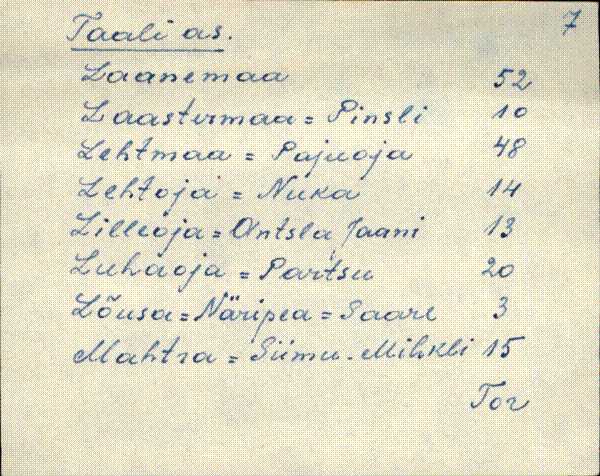 7
Taali as.
Laanemaa 52
Laastermaa = Pinsli 10
Lehtmaa = Pajuoja 48
Lehtoja = Nuka 14
Lilleoja = Antsla Jaani 13
Luhaoja = Partsu 20
Lõusa = Näripea = Saare 3
Mahtra = Siimu-Mihkli 15
Tor